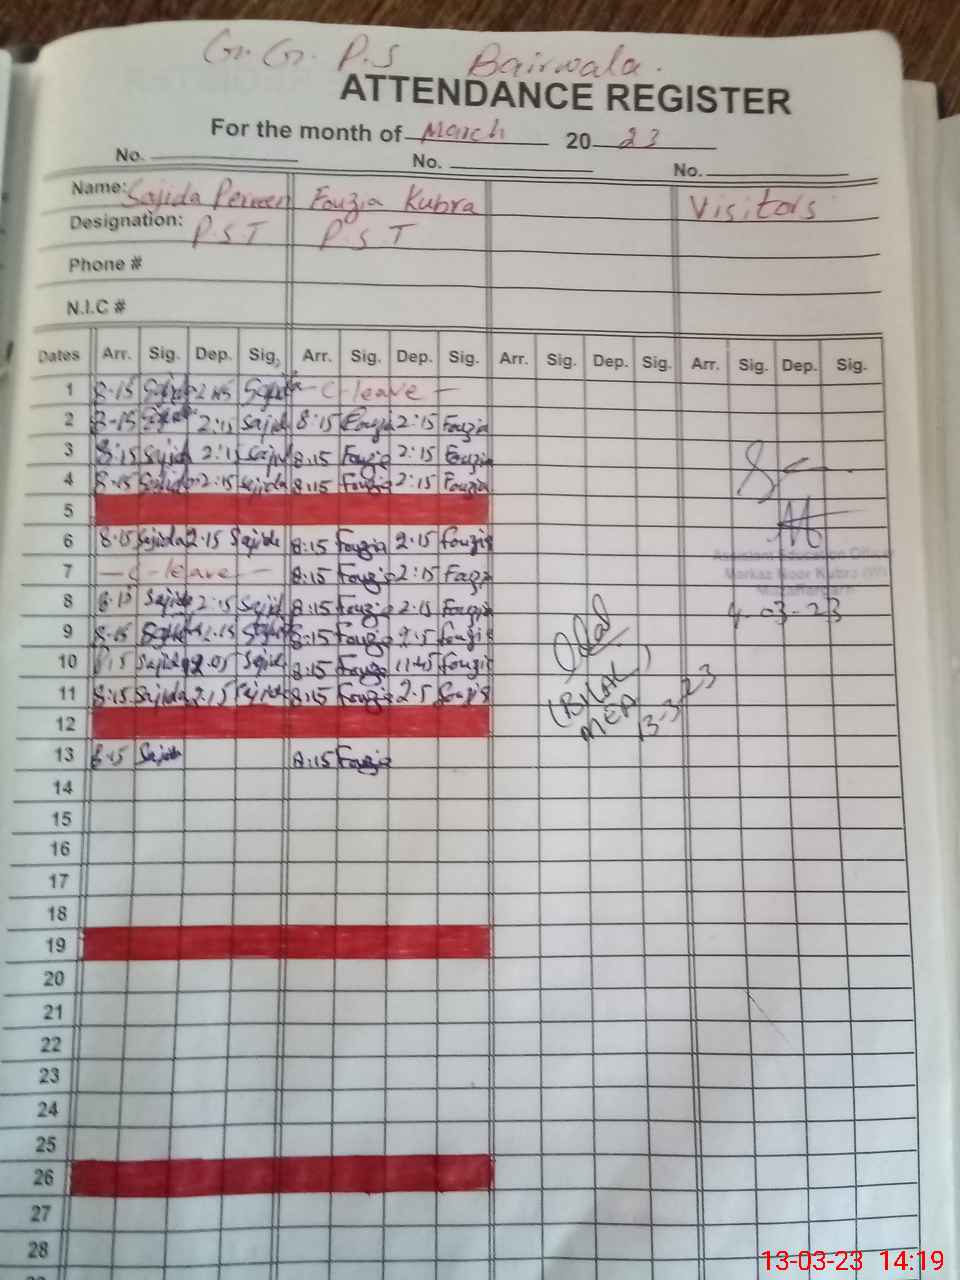 G. G. P.S Bairwala.
ATTENDANCE REGISTER
For the month of March 20 23
No. No. No.
Name: Sajida Perveen Fouzia Kubra Visitors
Designation: P.S T P S T
Phone #
N.I.C #
Dates Arr. Sig. Dep. Sig. Arr. Sig. Dep. Sig. Arr. Sig. Dep. Sig. Arr. Sig. Dep. Sig.
1 8-15 - C-leave -
2 8-15 2:15 Sajid 8:15 Fouzia 2:15 Fouzia
3 8:15 Sajid 2:15 Sajid 8:15 Fouzia 2:15 Fouzia
4 8:15 Sajida 2:15 Sajida 8:15 Fouzia 2:15 Fouzia
5
6 8:15 Sajida 2.15 Sajida 8:15 Fouzia 2:15 Fouzia
7 - C-leave - 8:15 Fouzia 2:15
8 8:15 Sajida 2:15 Sajid 8:15 Fouzia 2:15 Fouzia
9 8:15 2.15 8:15 Fouzia Fouzia
10 8:15 Sajida 2.05 Sajid 8:15 Fouzia 11:45 Fouzia
11 8:15 Sajida 2:15 8:15 Fouzia 2.5 Fouzia
12
13 8:15 Sajida 8:15 Fouzia
14
15
16
17
18
19
20
21
22
23
24
25
26
27
28
Assistant Education Officer
Markaz Noor Kubra (W)
Muzaffargarh
4-03-23
(BILAL)
MEA
13-3-23
13-03-23 14:19